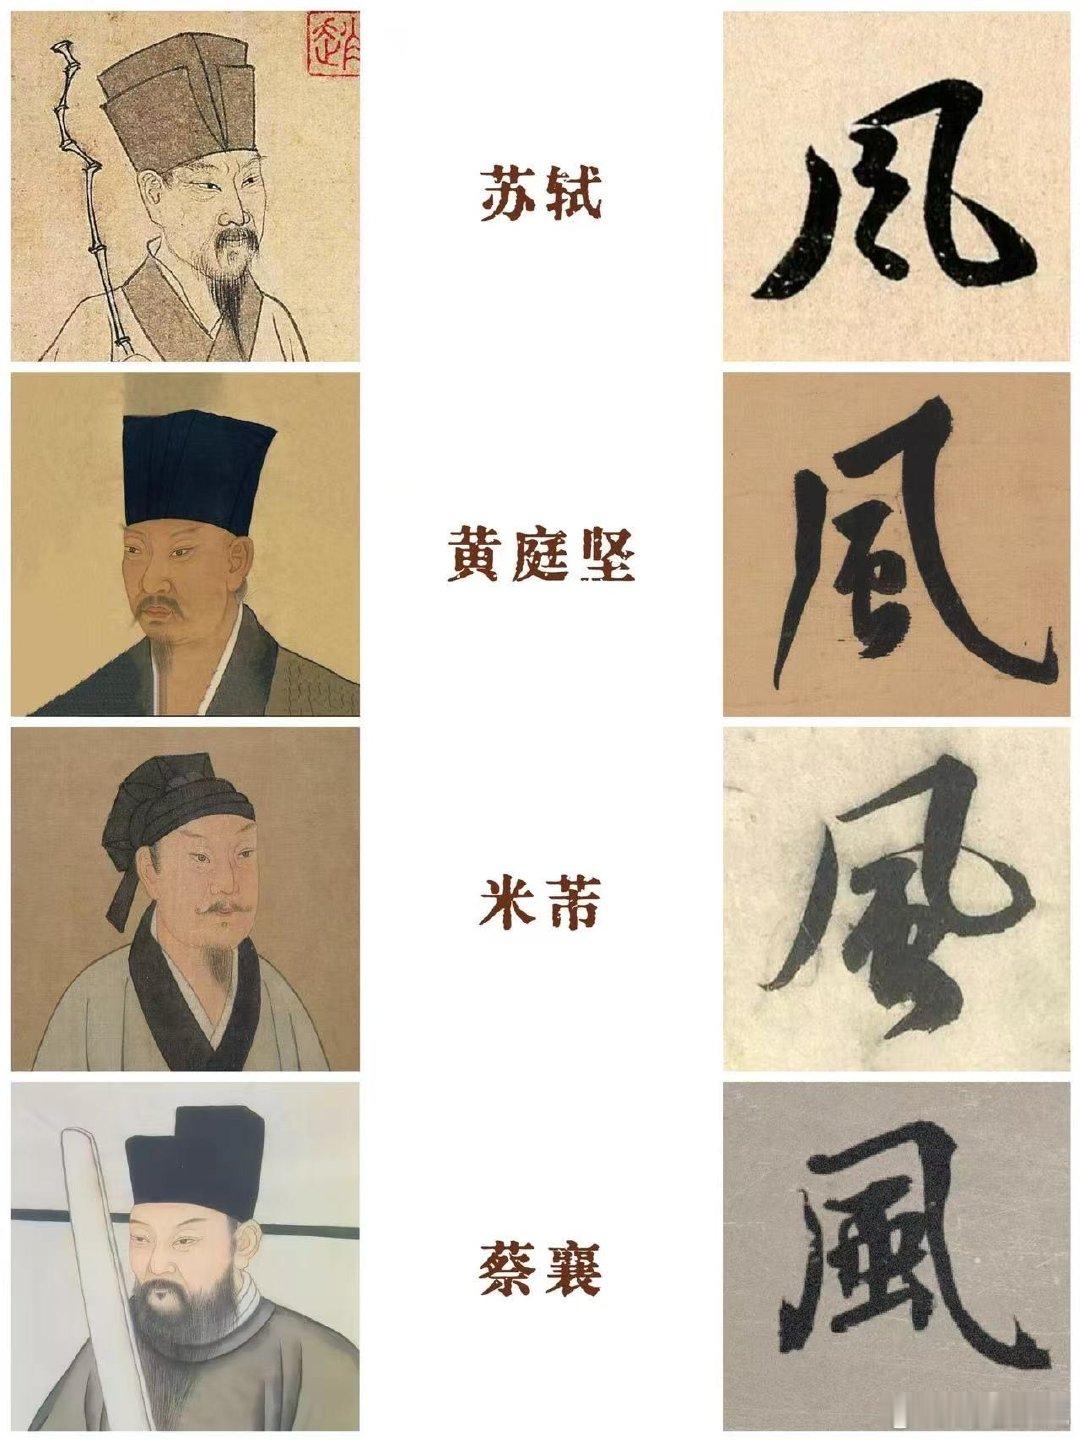 苏轼
風
黄庭坚
風
米芾
風
蔡襄
風